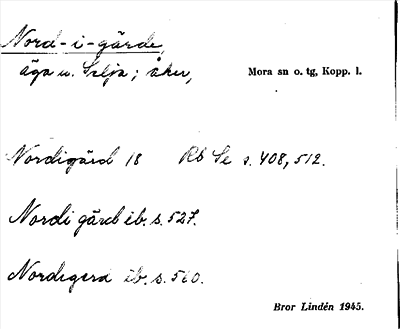 Nord-i-gärde,
äga u. Selja; åker, Mora sn o. tg, Kopp. l.
Nordigärd 18 Rb Se s. 408, 512.
Nordi gärd ib. s. 527.
Nordigerd ib. s. 560.
Bror Lindén 1945.